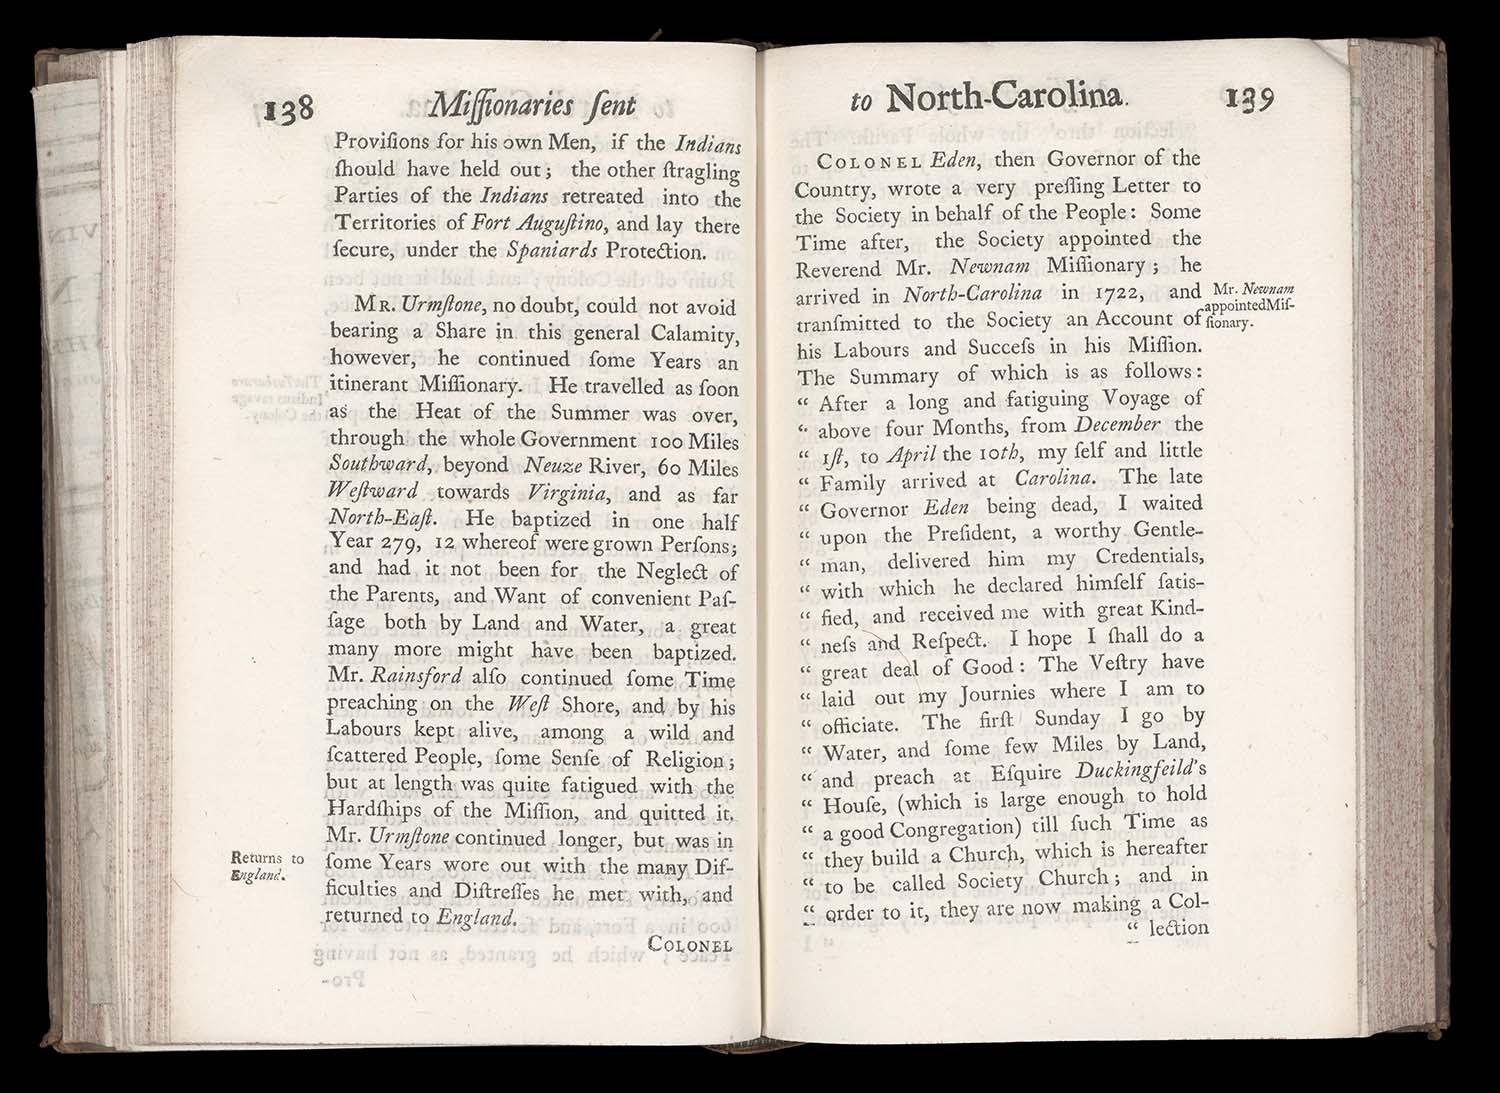 138 Miſſionaries ſent
Proviſions for his own Men, if the Indians
ſhould have held out; the other ſtragling
Parties of the Indians retreated into the
Territories of Fort Auguſtino, and lay there
ſecure, under the Spaniards Protection.
MR. Urmſtone, no doubt, could not avoid
bearing a Share in this general Calamity,
however, he continued ſome Years an
itinerant Miſſionary. He travelled as ſoon
as the Heat of the Summer was over,
through the whole Government 100 Miles
Southward, beyond Neuze River, 60 Miles
Weſtward towards Virginia, and as far
North-Eaſt. He baptized in one half
Year 279, 12 whereof were grown Perſons;
and had it not been for the Neglect of
the Parents, and Want of convenient Paſ-
ſage both by Land and Water, a great
many more might have been baptized.
Mr. Rainsford alſo continued ſome Time
preaching on the Weſt Shore, and by his
Labours kept alive, among a wild and
ſcattered People, ſome Senſe of Religion;
but at length was quite fatigued with the
Hardſhips of the Miſſion, and quitted it.
Mr. Urmſtone continued longer, but was in
Returns to
England.
ſome Years wore out with the many Dif-
ficulties and Diſtreſſes he met with, and
returned to England.
COLONEL
to North-Carolina. 139
COLONEL Eden, then Governor of the
Country, wrote a very preſſing Letter to
the Society in behalf of the People: Some
Time after, the Society appointed the
Reverend Mr. Newnam Miſſionary; he
arrived in North-Carolina in 1722, and
tranſmitted to the Society an Account of
Mr. Newnam
appointed Miſ-
ſionary.
his Labours and Succeſs in his Miſſion.
The Summary of which is as follows:
“ After a long and fatiguing Voyage of
“ above four Months, from December the
“ 1ſt, to April the 10th, my ſelf and little
“ Family arrived at Carolina. The late
“ Governor Eden being dead, I waited
“ upon the Preſident, a worthy Gentle-
“ man, delivered him my Credentials,
“ with which he declared himſelf ſatis-
“ fied, and received me with great Kind-
“ neſs and Reſpect. I hope I ſhall do a
“ great deal of Good: The Veſtry have
“ laid out my Journies where I am to
“ officiate. The firſt Sunday I go by
“ Water, and ſome few Miles by Land,
“ and preach at Eſquire Duckingfeild's
“ Houſe, (which is large enough to hold
“ a good Congregation) till ſuch Time as
“ they build a Church, which is hereafter
“ to be called Society Church; and in
“ order to it, they are now making a Col-
“ lection